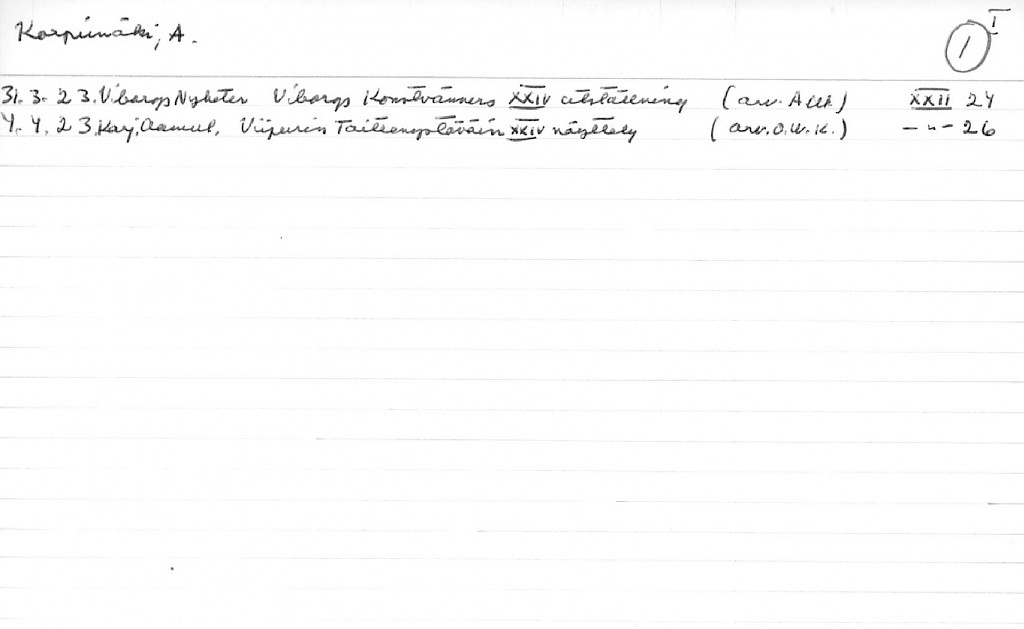 Karpiimäki, A.
I
1
31. 3. 23. Viborgs Nyheter Viborgs Konstvänners XXIV utställning (arv. A) XXII 24
4. 4. 23 Karj. Aamul. Viipurin Taiteenystäväin XXIV näyttely (arv. O.W.K.) -"- 26